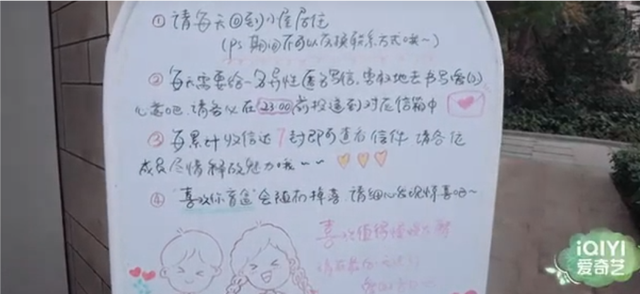 ① 请每天回到小屋居住
(Ps 期间不可以交换联系方式哦～)
② 每天需要给一名异性匿名写信,实在地去书写你(的)
心意吧 请务必在23:00前投递到对应信箱中
③ 每累计收信达7封即可查看信件 请各位
成员尽情释放魅力哦～～
④ "喜欢你首选"会随机掉落,请细心发现惊喜吧～
喜欢值得
iQIYI
爱奇艺